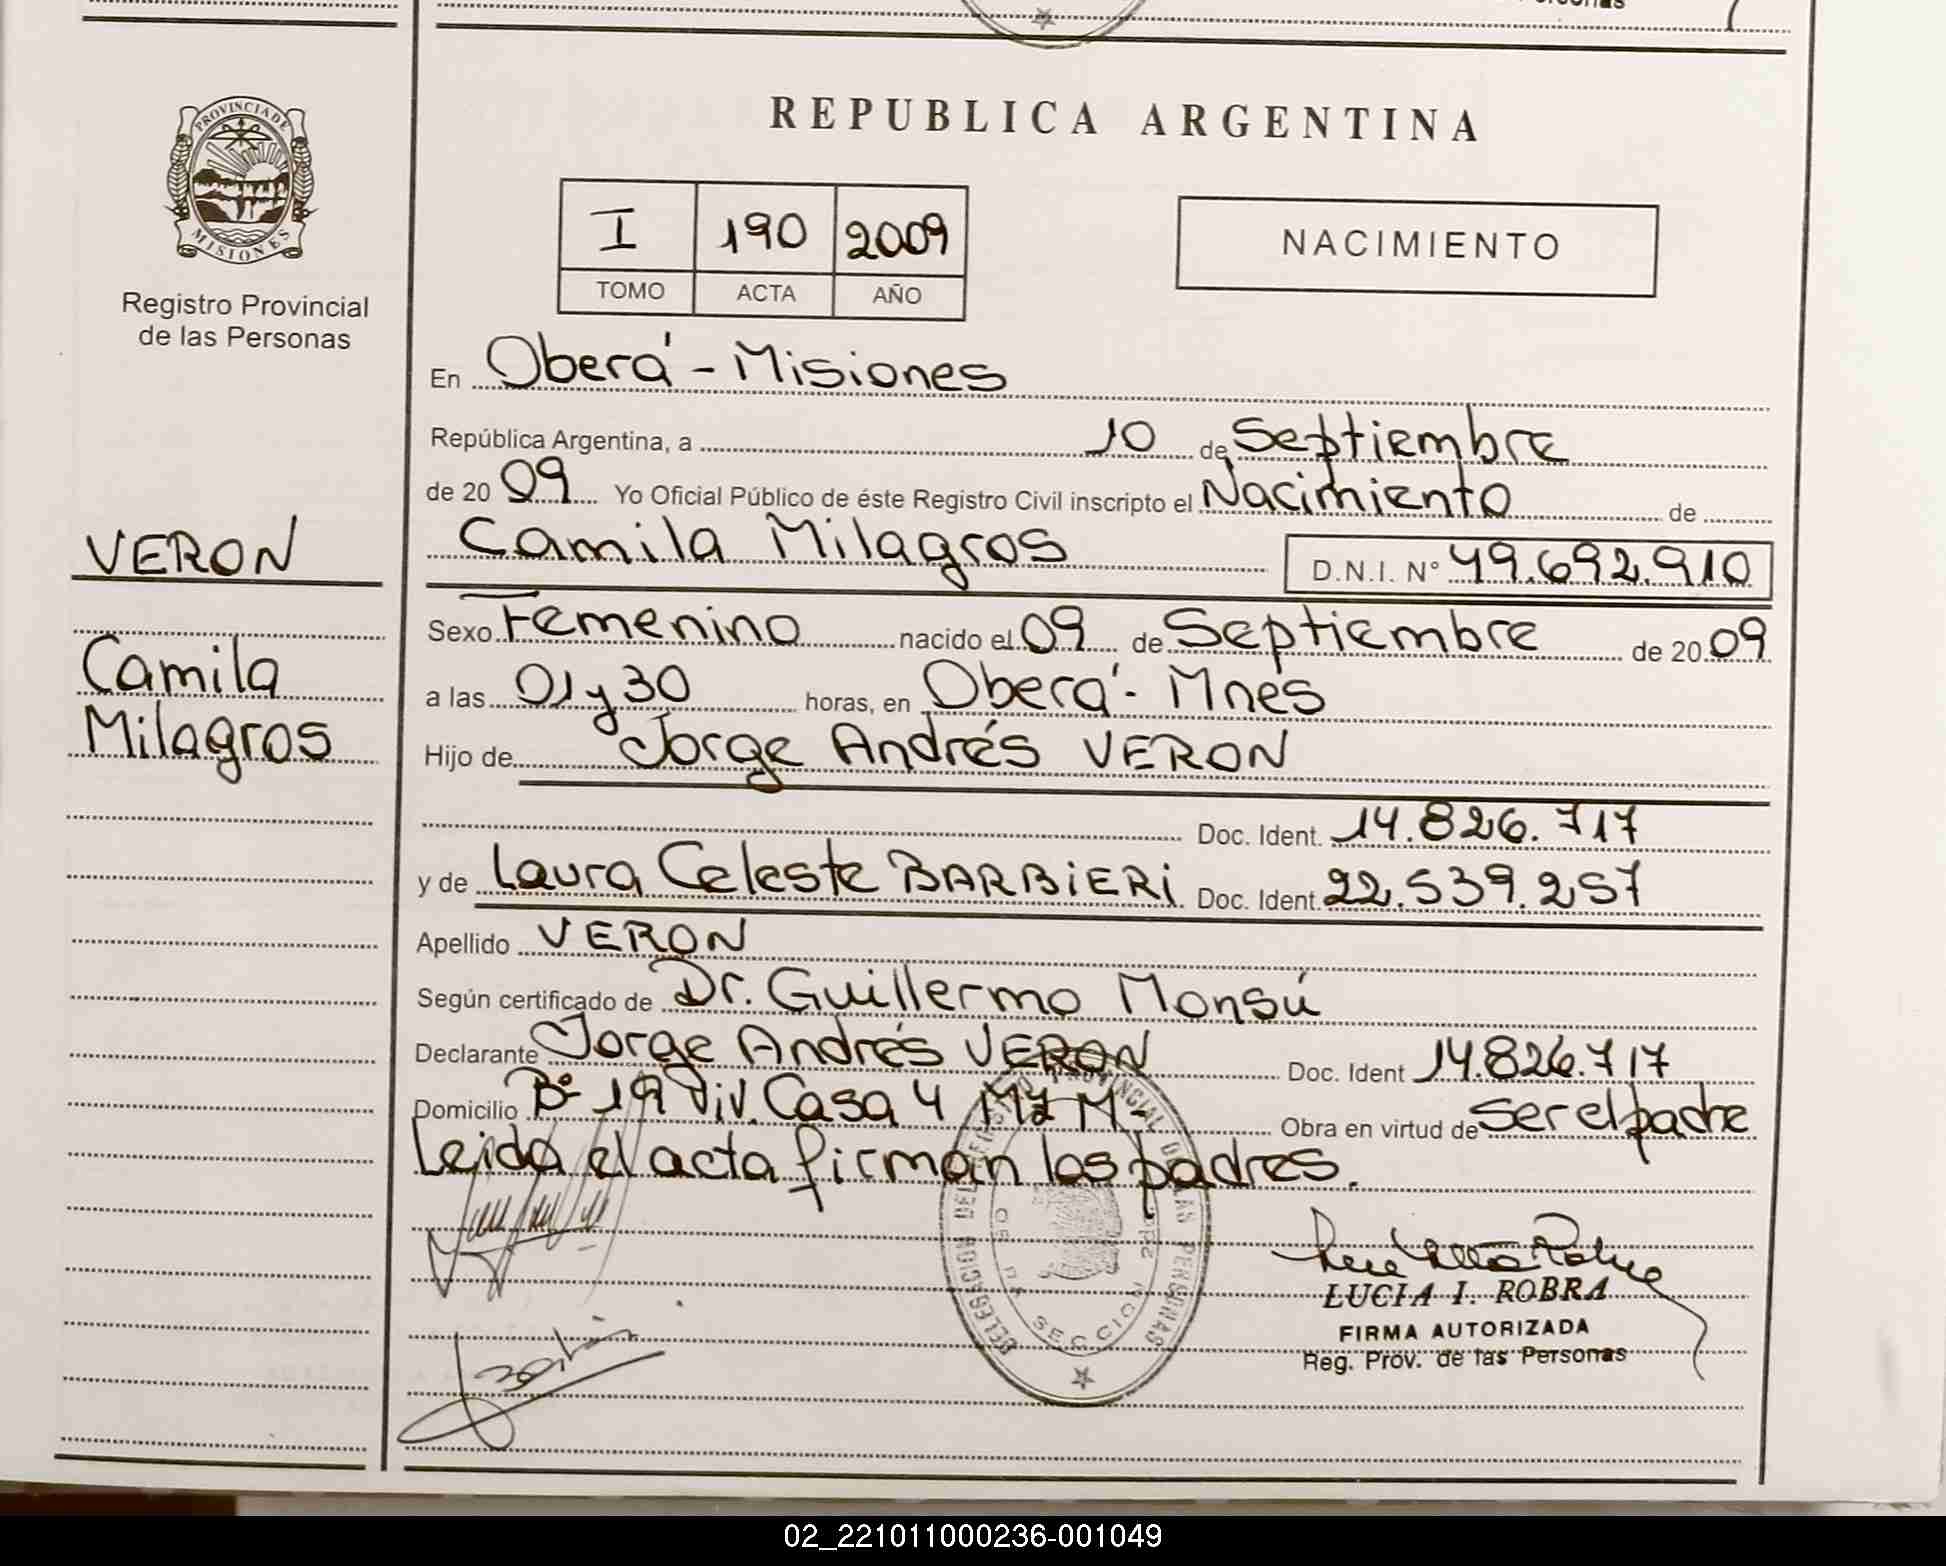 REPUBLICA ARGENTINA
PROVINCIA DE MISIONES
Registro Provincial
de las Personas
I 190 2009
TOMO ACTA AÑO
NACIMIENTO
VERON
Camila
Milagros
En Oberá - Misiones
República Argentina, a 10 de Septiembre
de 2009 Yo Oficial Público de éste Registro Civil inscripto el Nacimiento de
Camila Milagros D.N.I. N° 49.692.910
Sexo Femenino nacido el 09 de Septiembre de 2009
a las 01 y 30 horas, en Oberá - Mnes
Hijo de Jorge Andrés VERON
Doc. Ident. 14.826.717
y de Laura Celeste BARBiERi Doc. Ident. 22.539.257
Apellido VERON
Según certificado de Dr. Guillermo Monsú
Declarante Jorge Andrés VERON Doc. Ident 14.826.717
Domicilio B° 19 Viv. Casa 4 Mz M- Obra en virtud de ser el padre
Leida el acta firman los padres.
DELEGACION DEL REGISTRO PROVINCIAL DE LAS PERSONAS
SECCION
LUCIA I. ROBRA
FIRMA AUTORIZADA
Reg. Prov. de las Personas
02_221011000236-001049